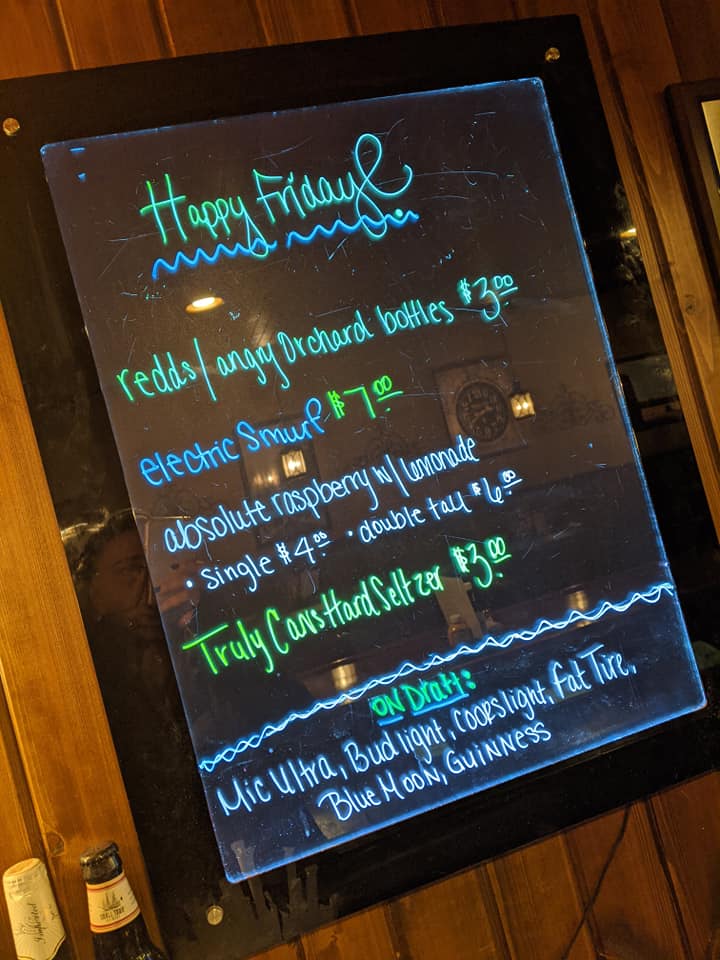 Happy Friday!
redds/angry Orchard bottles $3.00
electric Smurf $7.00
absolute raspberry w/ lemonade
• single $4.00 • double tall $6.00
Truly Cans Hard Seltzer $3.00
ON Draft:
Mic Ultra, Bud light, coorslight, Fat Tire,
Blue Moon, GUINNESS